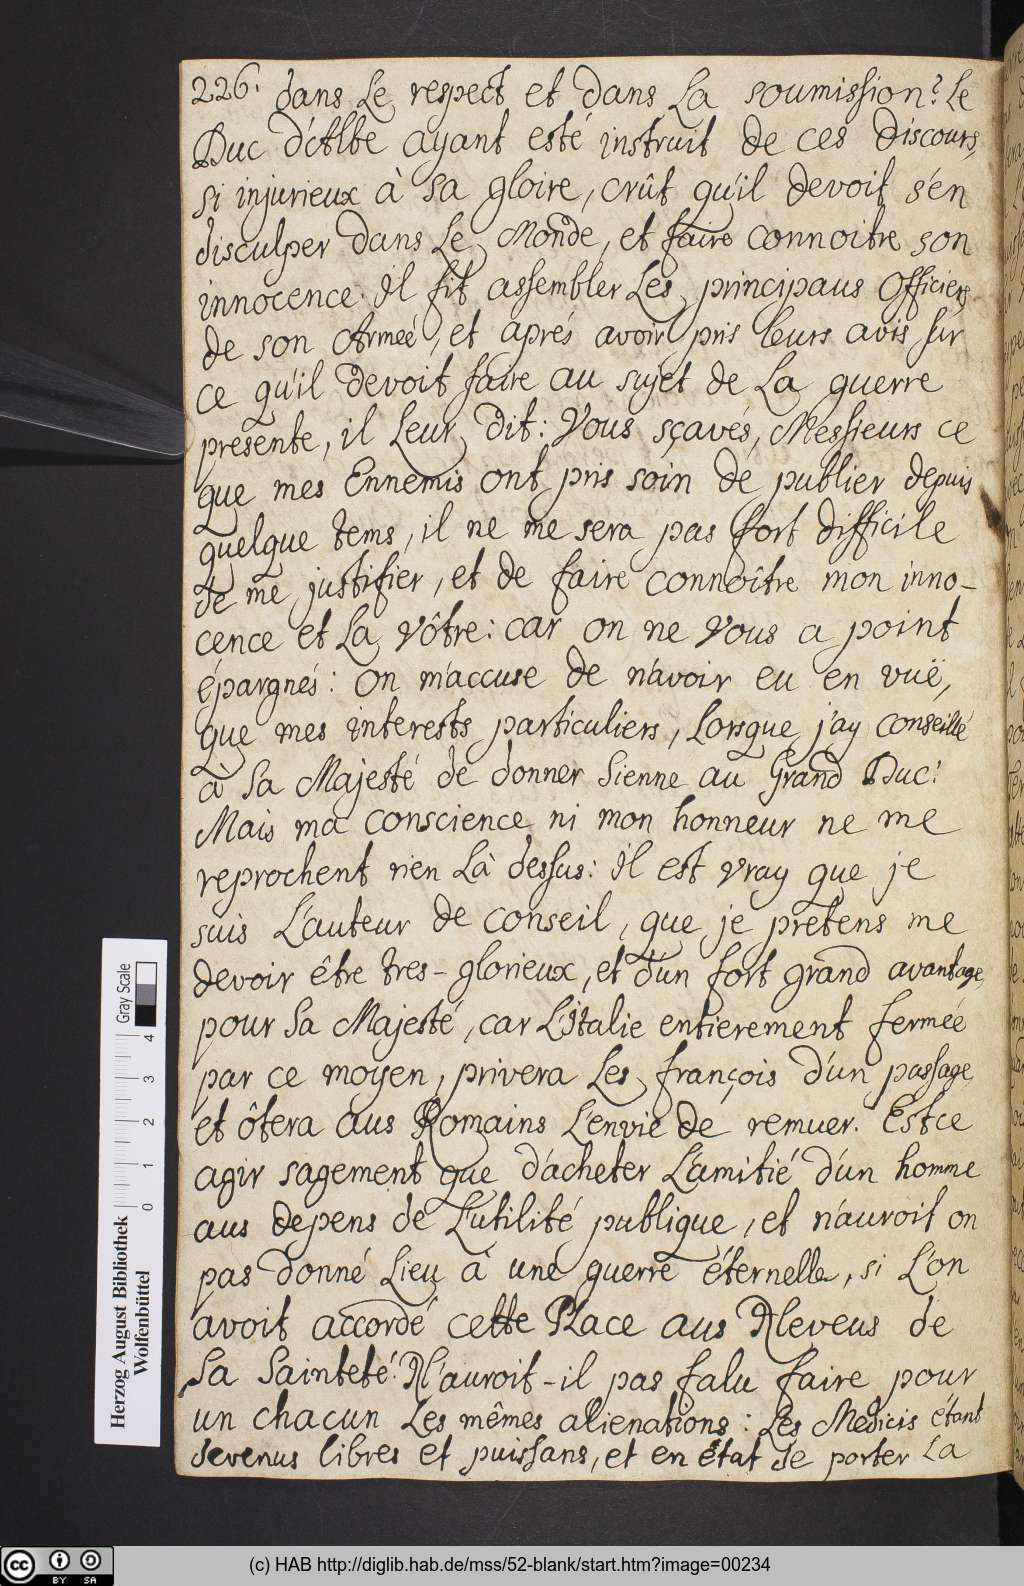 226. dans Le respect et dans La soumission? Le
Duc d'Albe ayant esté instruit de ces discours,
si injurieux à sa gloire, crût qu'il devoit s'en
disculper dans Le Monde, et faire connoitre son
innocence. Il fit assembler Les principaus Officiers
de son Armeé, et aprés avoir pris leurs avis sur
ce qu'il devoit faire au sujet de La guerre
presente, il Leur dit: Vous sçavés, Messieurs ce
que mes Ennemis ont pris soin de publier depuis
quelque tems, il ne me sera pas fort difficile
de me justifier, et de faire connoître mon inno-
cence et La vôtre: car on ne vous a point
épargnés: On m'accuse de n'avoir eu en vuë,
que mes interests particuliers, Lorsque j'ay conseillé
à Sa Majesté de donner Sienne au Grand Duc:
Mais ma conscience ni mon honneur ne me
reprochent rien Là dessus: Il est vray que je
suis L'auteur de conseil, que je pretens me
devoir être tres-glorieux, et d'un fort grand avantage,
pour Sa Majesté, car L'Italie entierement fermeé
par ce moyen, privera Les françois d'un passage,
et ôtera aus Romains L'envie de remuer. Estce
agir sagement que d'acheter L'amitié d'un homme
aus depens de L'utilité publique, et n'auroit on
pas donné Lieu à une guerre éternelle, si L'on
avoit accordé cette Place aus Neveus de
Sa Sainteté: N'auroit-il pas falu faire pour
un chacun Les mêmes alienations: Les Medicis étant
devenus libres et puissans, et en état de porter La
Herzog August Bibliothek
Wolfenbüttel
0 1 2 3 4
Gray Scale
cc BY SA
(c) HAB http://diglib.hab.de/mss/52-blank/start.htm?image=00234